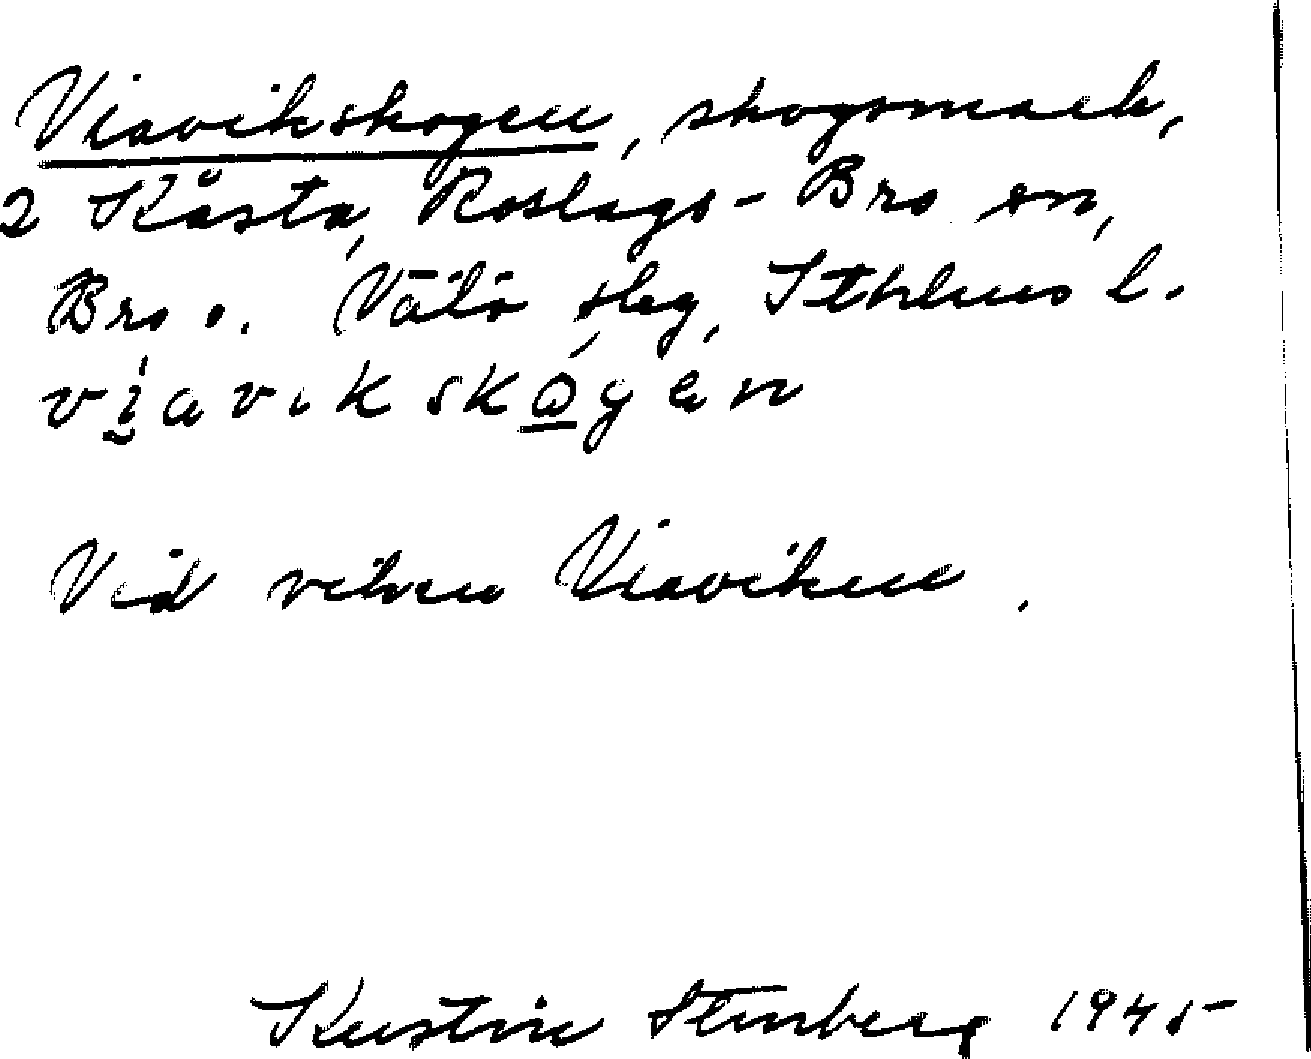 Viavikskogen, skogsmark,
2 Kåsta, Roslags-Bro sn,
Bro o. Vätö slg, Sthlms l.
viavikskógen
Vid viken Viaviken.
Kerstin Stenberg 1945